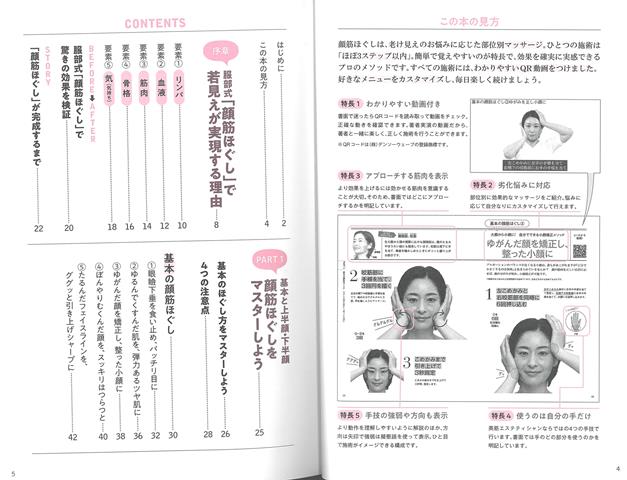 この本の見方
顔筋ほぐしは、老け見えのお悩みに応じた部位別マッサージ。ひとつの施術は
「ほぼ3ステップ以内」。簡単で覚えやすいのが特長で、効果を確実に実感できる
プロのメソッドです。すべての施術には、わかりやすいQR動画をつけました。
好きなメニューをカスタマイズし、毎日楽しく続けましょう。
特長1 わかりやすい動画付き
書面で迷ったらQRコードを読み取って動画をチェック。
正確な動きを確認できます。著者実演の動画だから、
著者と一緒に楽しく、正しく施術を行うことができます。
※QRコードは(株)デンソーウェーブの登録商標です。
特長3 アプローチする筋肉を表示
より効果を上げるには効かせる筋肉を意識する
ことが大切。そのため、書面ではどこにアプロー
チするかを明記しています。
特長2 劣化悩みに対応
部位別に効果的なマッサージをご紹介。悩みに
応じて自分なりにカスタマイズして行えます。
ゆがんだ顔を矯正し、
整った小顔に
2 咬筋部に
手根を当て
3回円を描く
1 左こめかみと
右咬筋部を同時に
6回押し込む
3 こめかみまで
引き上げて
3秒固定
特長5 手技の強弱や方向も表示
より動作を理解しやすいように解説のほか、方
向は矢印で強弱は擬態語を使って表示。ひと目
で施術がイメージできる構成です。
特長4 使うのは自分の手だけ
美筋エステティシャンならではの4つの手技で行
います。書面では手のどの部分を使うのかを明
記しています。
4
CONTENTS
はじめに 2
この本の見方 4
序章
服部式「顔筋ほぐし」で
若見えが実現する理由 8
要素① リンパ 10
要素② 血液 12
要素③ 筋肉 14
要素④ 骨格 16
要素⑤ 気(気持ち) 18
BEFORE AFTER
服部式「顔筋ほぐし」で
驚きの効果を検証 20
STORY
「顔筋ほぐし」が完成するまで 22
PART 1
基本と上半顔・下半顔
顔筋ほぐしを
マスターしよう 25
基本のほぐし方をマスターしよう 26
4つの注意点 28
基本の顔筋ほぐし 30
①眼瞼下垂を食い止め、パッチリ目に 32
②ゆるんでくすんだ肌を、弾力あるツヤ肌に 36
③ゆがんだ顔を矯正し、整った小顔に 38
④ぼんやりむくんだ顔を、スッキリはつらつと 40
⑤たるんだフェイスラインを、
ググッと引き上げシャープに 42
5